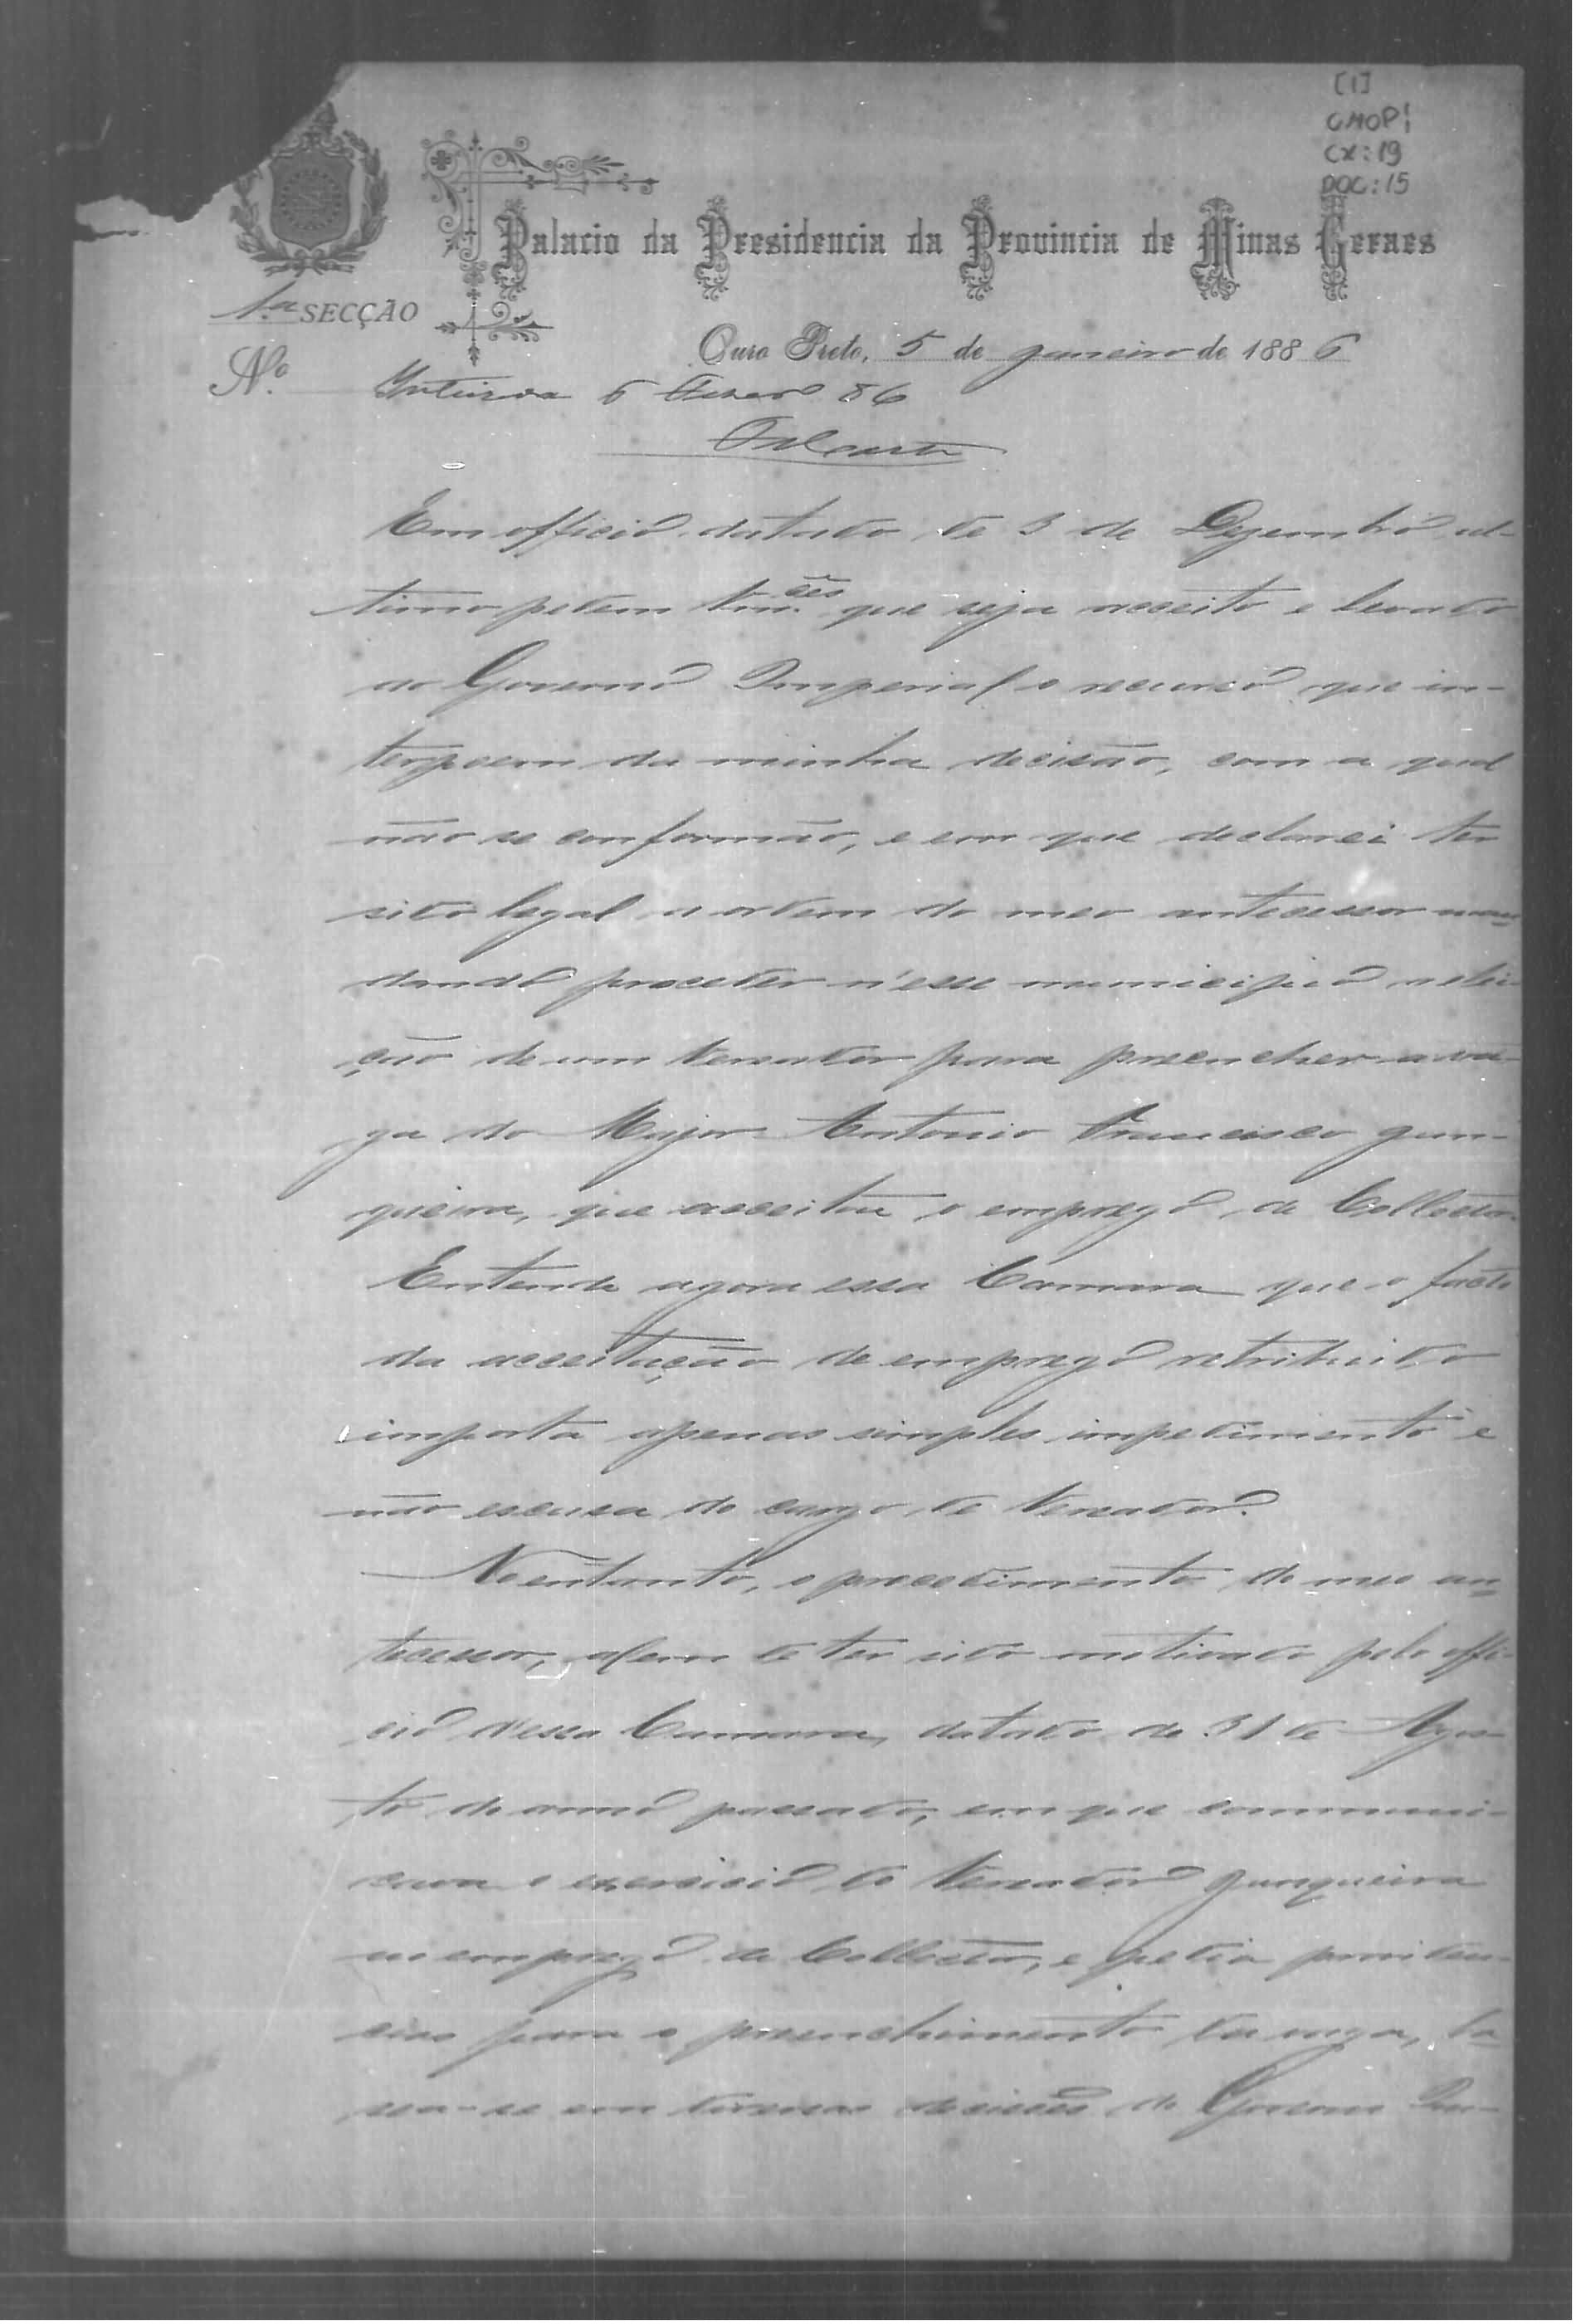 [1]
CMOP
CX: 19
DOC: 15
Palacio da Presidencia da Provincia de Minas Geraes
1.a SECÇÃO
Ouro Preto, 5 de Janeiro de 1886
N.o
Inteirada 5 86
Em officio datado de 3 de Dezembro ul-
timo pedem Vm.cês que seja acceito e levado
ao Governo Imperial o recurso que in-
terpoem da minha decisão, com a qual
não se conformão, e em que declarei ter
sido legal a ordem do meo antecessor man-
dando proceder n'esse municipio a elei-
ção de um Vereador para preencher a va-
ga do Major Antonio Francisco Jun-
queira, que acceitou o emprego de Collector.
Entende agora essa Camara que o facto
da acceitação de emprego retribuido
importa apenas simples impedimento e
não escusa do cargo de Vereador.
No entanto, o procedimento do meo an-
tecessor, alem de ter sido motivado pelo offi-
cio dessa Camara, datado de 31 de Agos-
to do anno passado, em que communi-
cava o exercicio do Vereador Junqueira
no emprego de Collector, e pedia providen-
cias para o preenchimento da vaga, ba-
sea-se em diversas decisões do Governo Im-